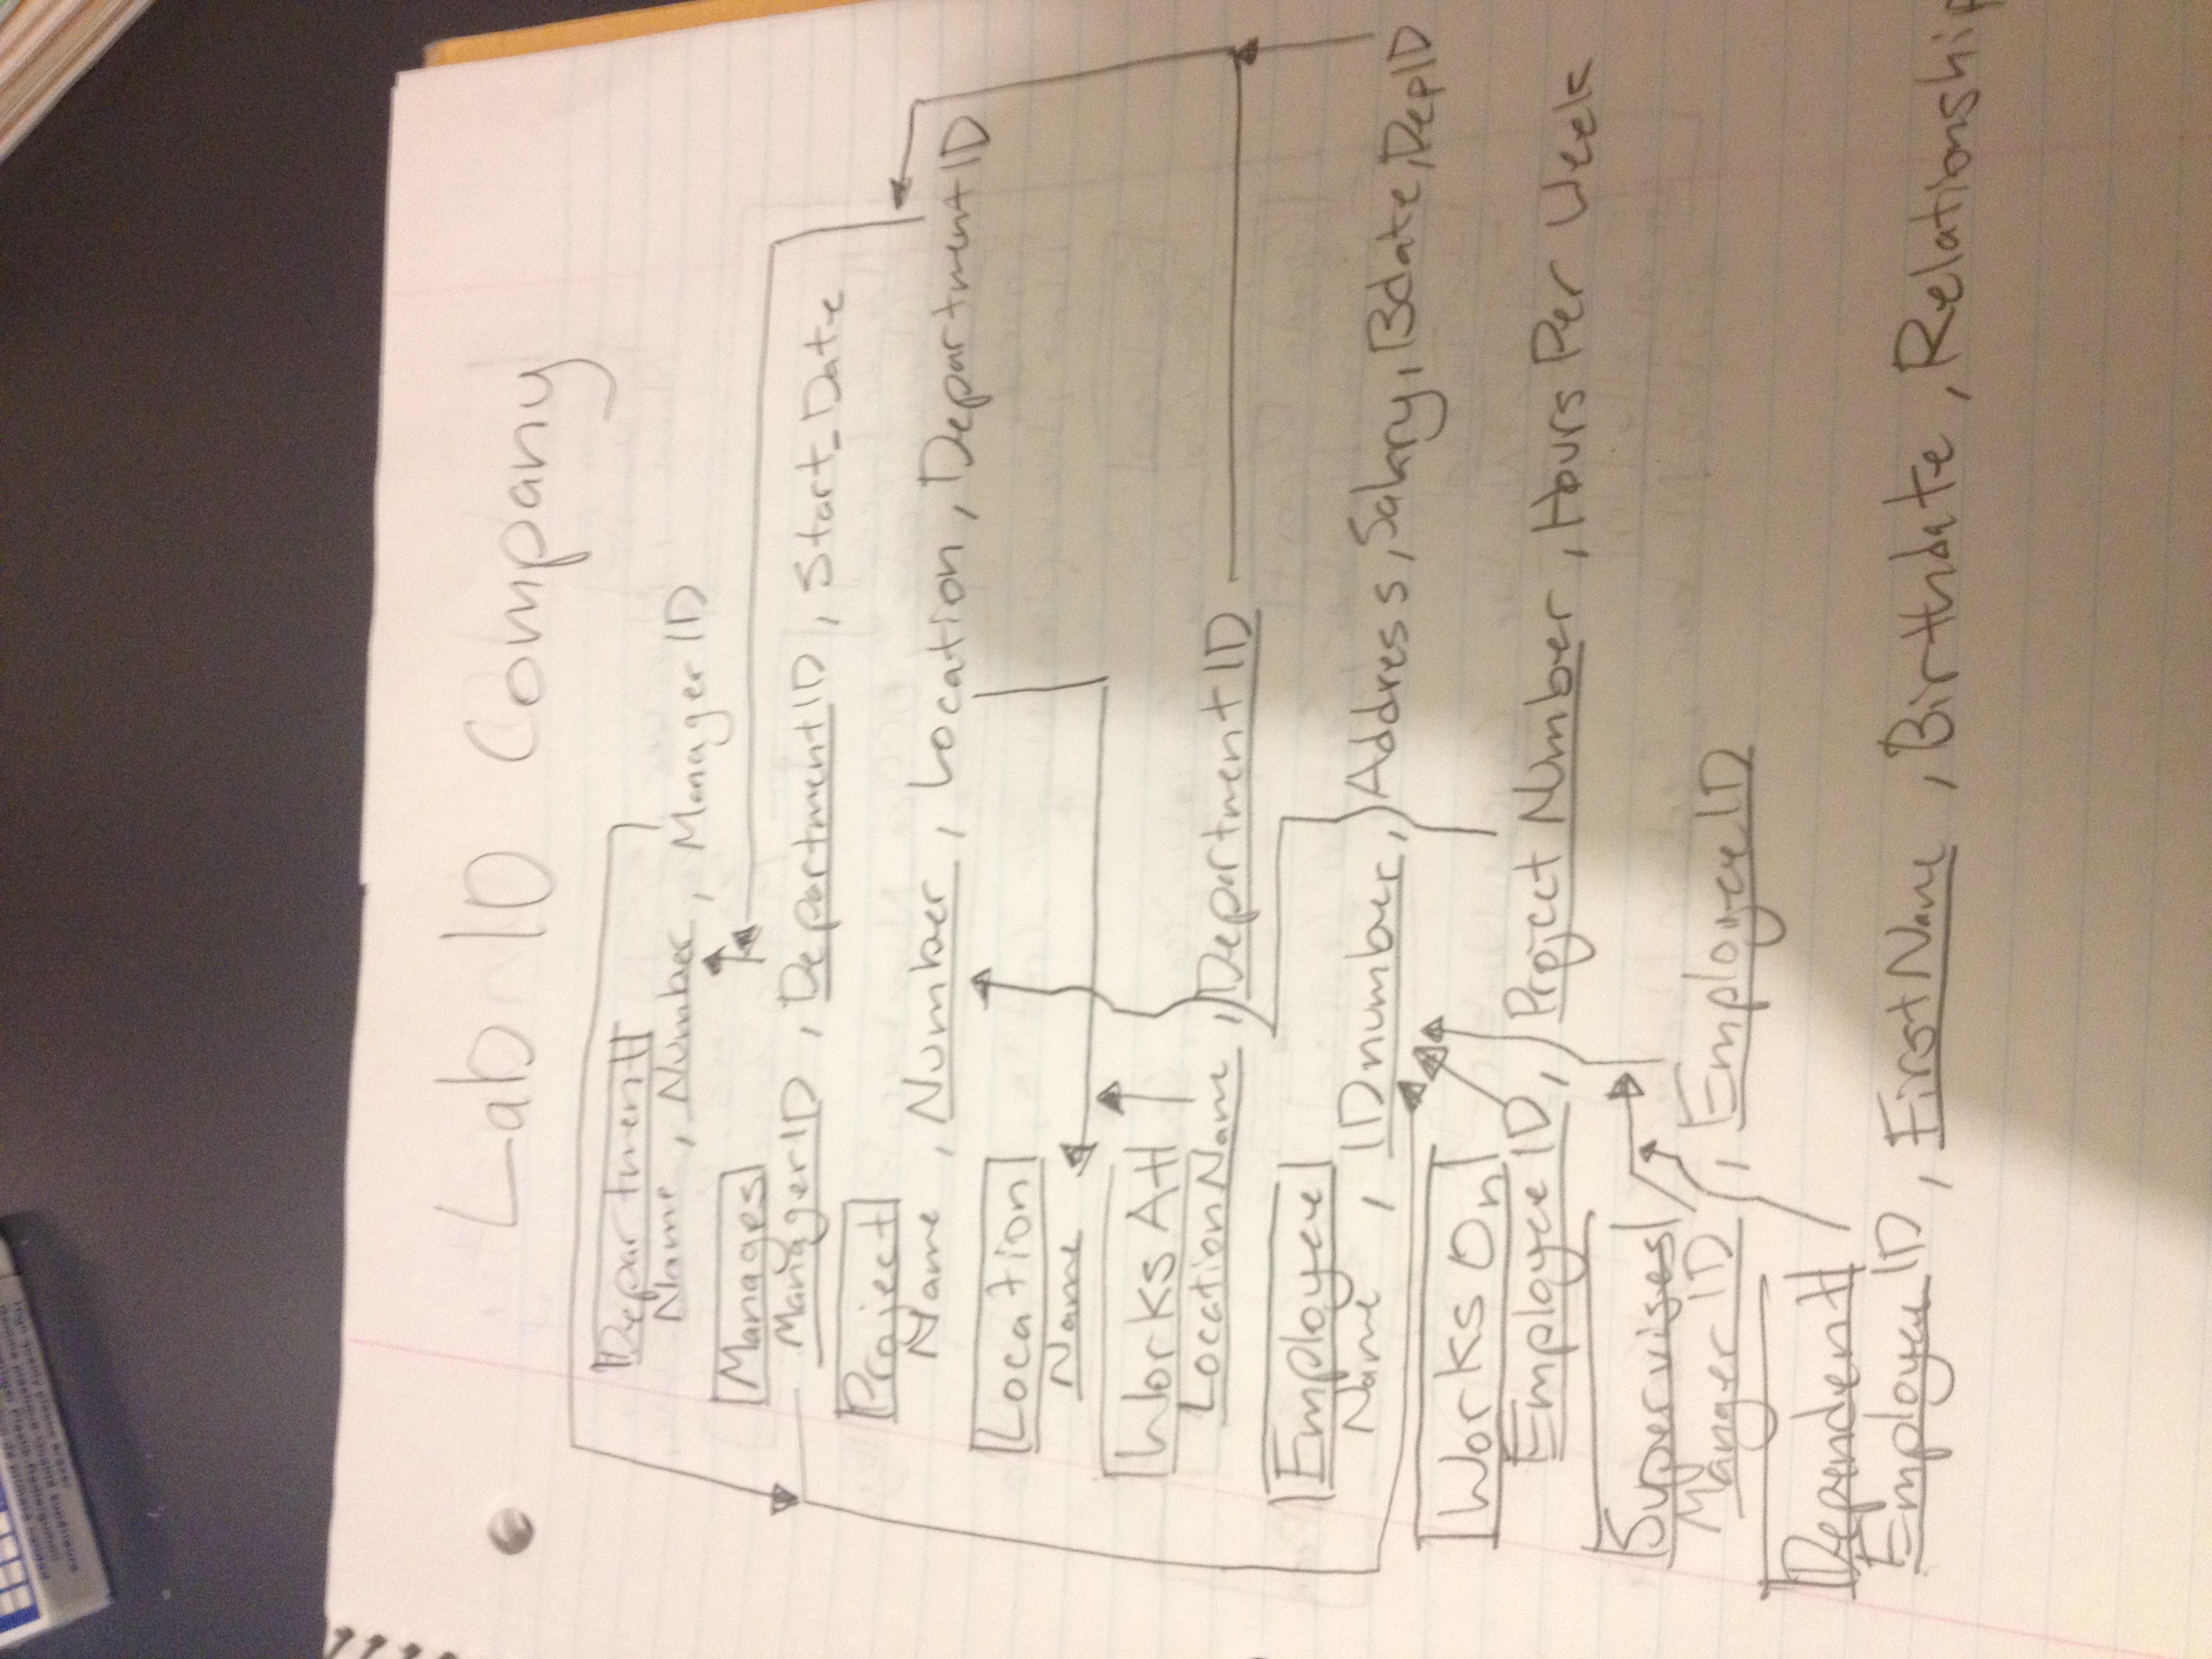 Lab 10 Company
Department
Name, Number, ManagerID
Manages
ManagerID, DepartmentID, Start_Date
Project
Name, Number, Location, DepartmentID
Location
Name
Works At
LocationName, DepartmentID
Employee
Name, IDnumber, Address, Salary, Bdate, DepID
Works On
EmployeeID, Project Number, Hours Per Week
Supervises
Manger ID, EmployeeID
Dependent
EmployeeID, FirstName, Birthdate, Relationship